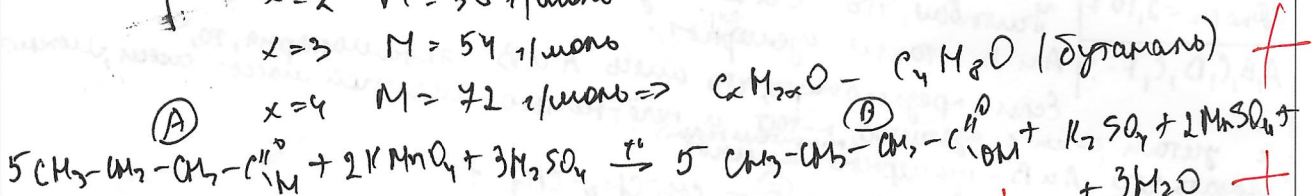 x=2 M=36 г/моль
x=3 M= 54 г/моль
x=4 M= 72 г/моль => CxH2xO – C4H8O (бутаналь) +
(A) (B)
5 CH3–CH2–CH2–C(=O)H + 2KMnO4 + 3H2SO4 t°→ 5 CH3–CH2–CH2–C(=O)OH + K2SO4 + 2MnSO4 +
+ 3H2O +